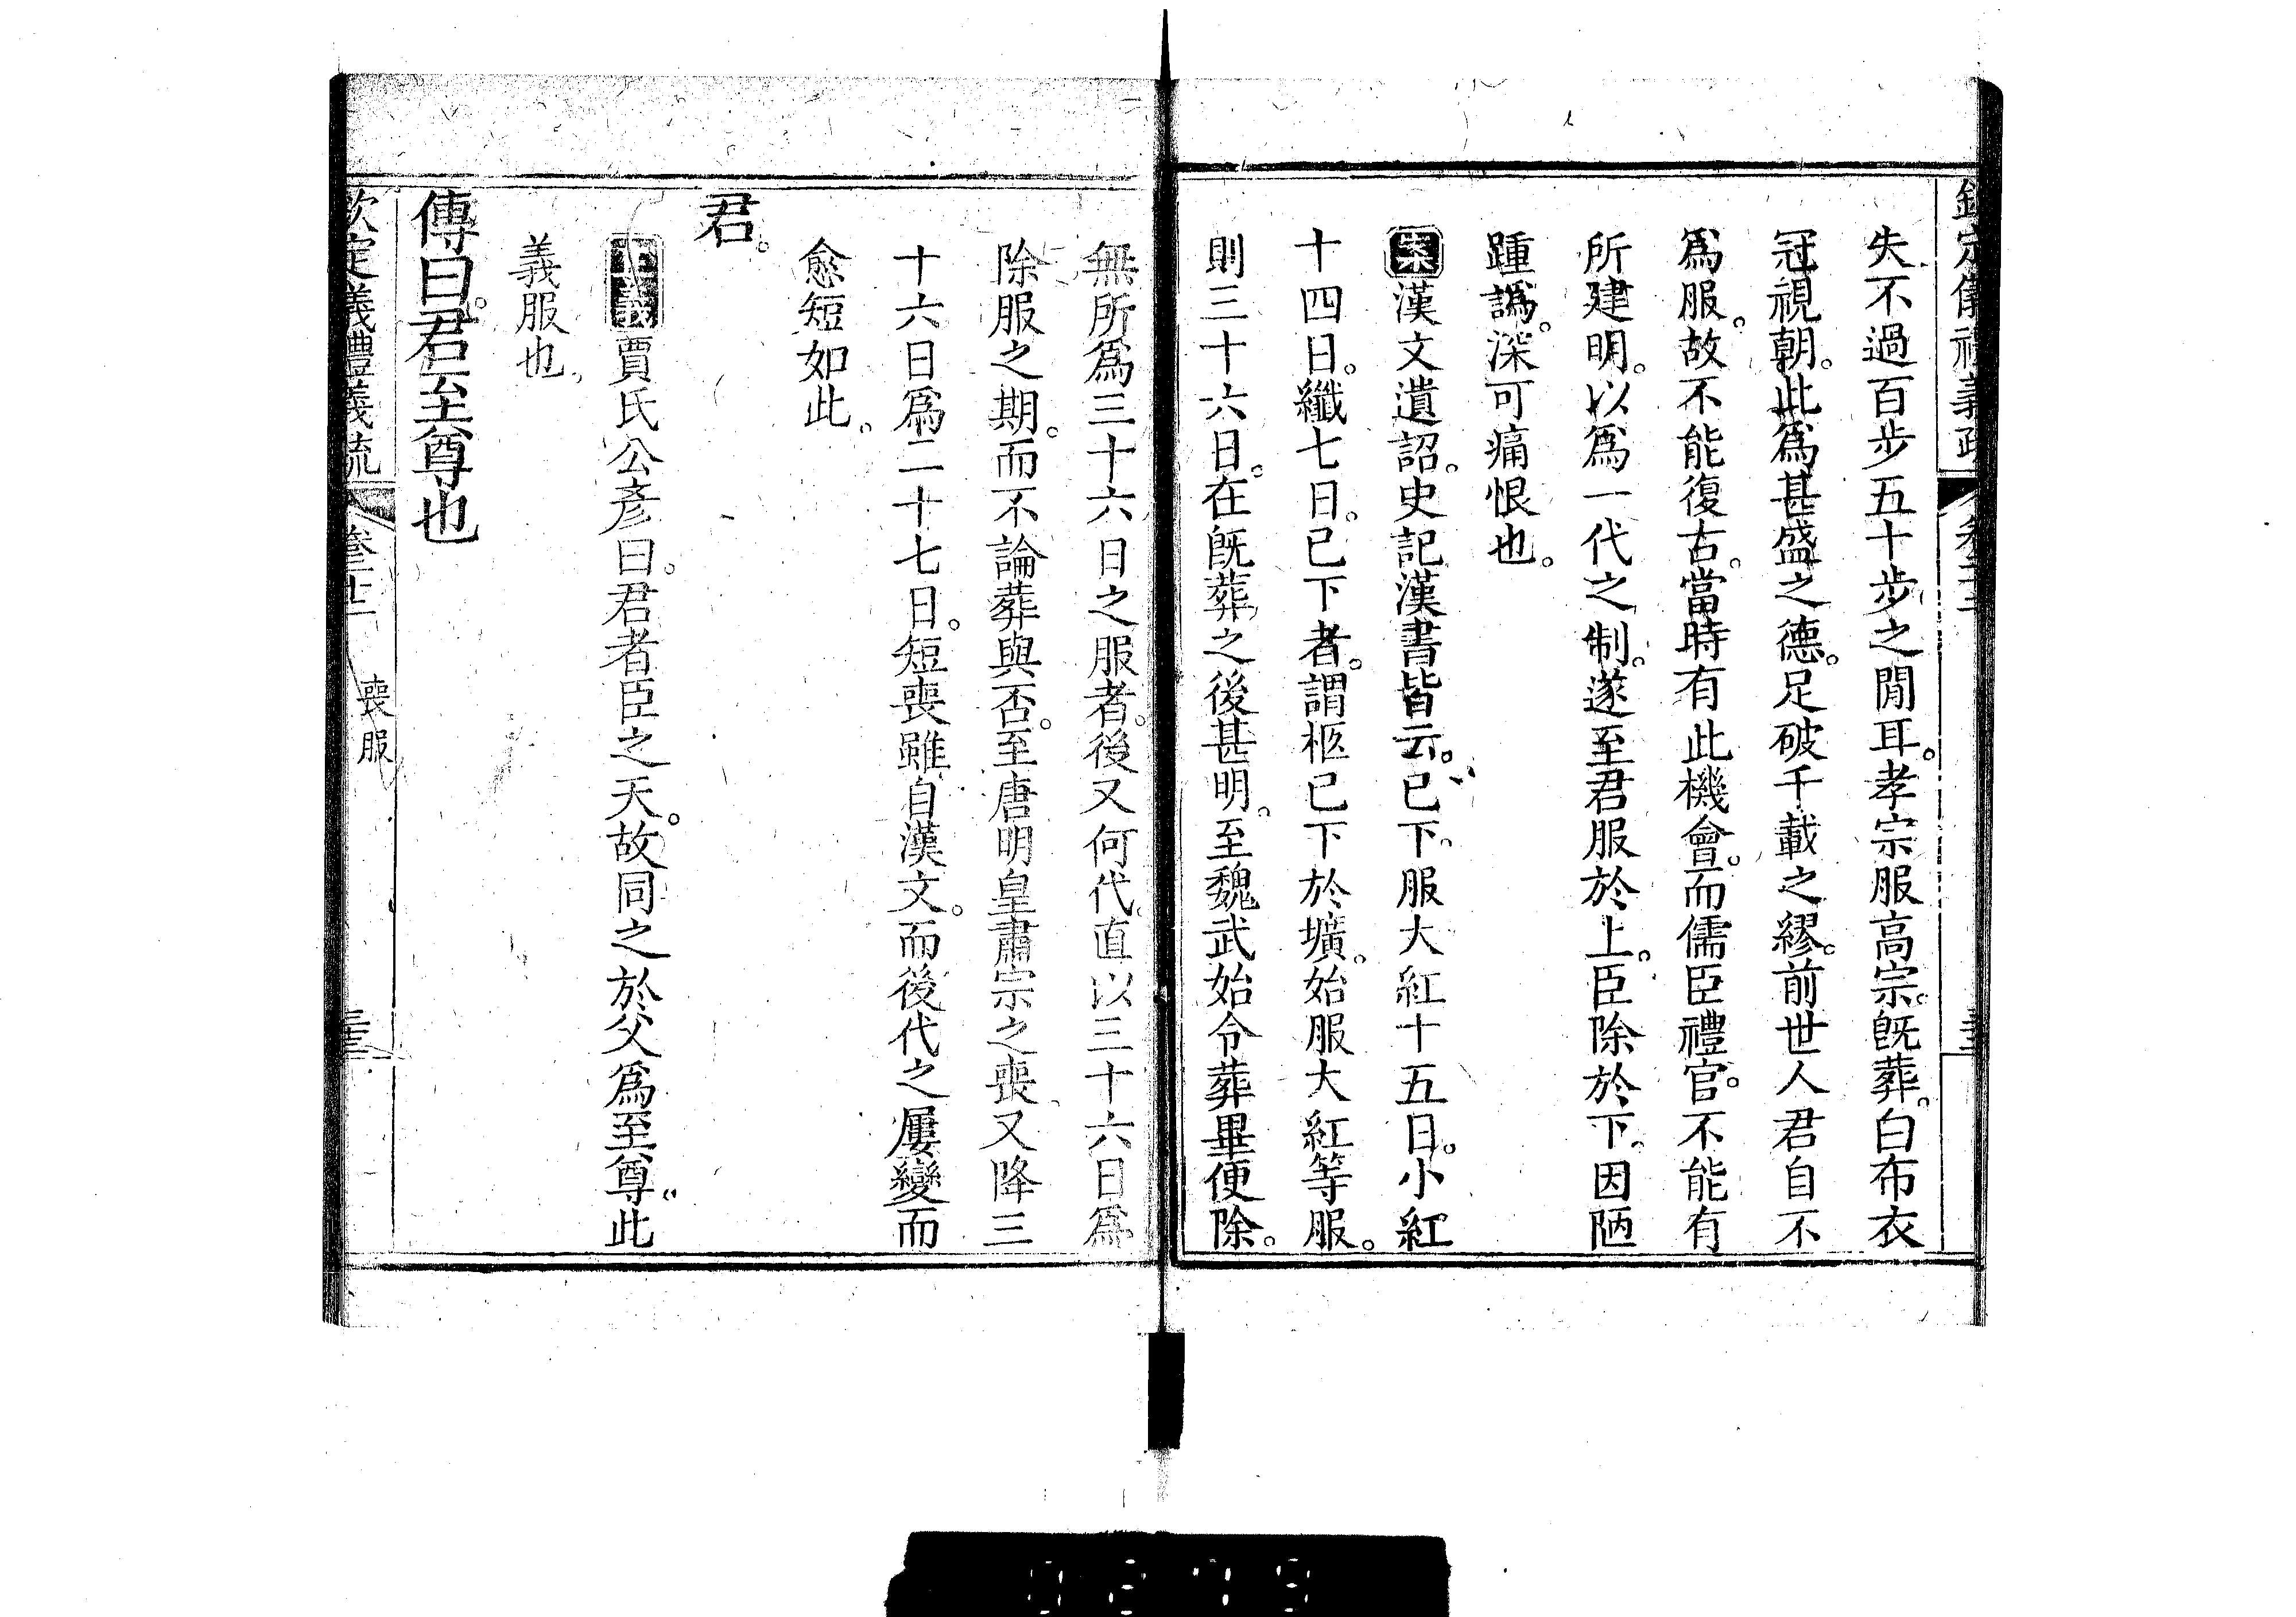 欽定儀禮義疏 卷二十二
失不過百步五十步之閒耳。孝宗服高宗。旣葬。白布衣
冠視朝。此爲甚盛之德。足破千載之繆。前世人君自不
爲服。故不能復古。當時有此機會。而儒臣禮官。不能有
所建明。以爲一代之制。遂至君服於上。臣除於下。因陋
踵譌。深可痛恨也。
案漢文遺詔。史記漢書皆云。已下。服大紅十五日。小紅
十四日。纖七日。已下者。謂柩已下於壙。始服大紅等服。
則三十六日。在旣葬之後甚明。至魏武始令葬畢便除。
無所爲三十六日之服者。後又何代。直以三十六日爲
除服之期。而不論葬與否。至唐明皇肅宗之喪。又降三
十六日爲二十七日。短喪雖自漢文。而後代之屢變而
愈短如此。
君。
正義賈氏公彥曰。君者臣之天。故同之於父爲至尊。此
義服也。
傳曰。君至尊也
欽定儀禮義疏 卷二十二 喪服